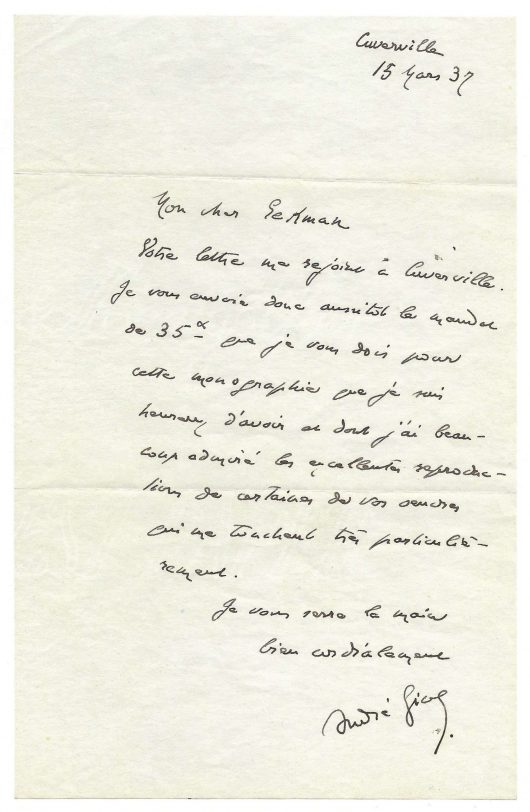 Cuverville
15 Mars 37
Mon cher Eekman
Votre lettre me rejoint à Cuverville.
Je vous envoie donc aussitôt le mandat
de 35 que je vous dois pour
cette monographie que je suis
heureux d'avoir et dont j'ai beau-
coup admiré les excellentes reproduc-
tions de certaines de vos oeuvres
qui me touchent très particuliè-
rement.
Je vous serre la main
bien cordialement
André Gide.